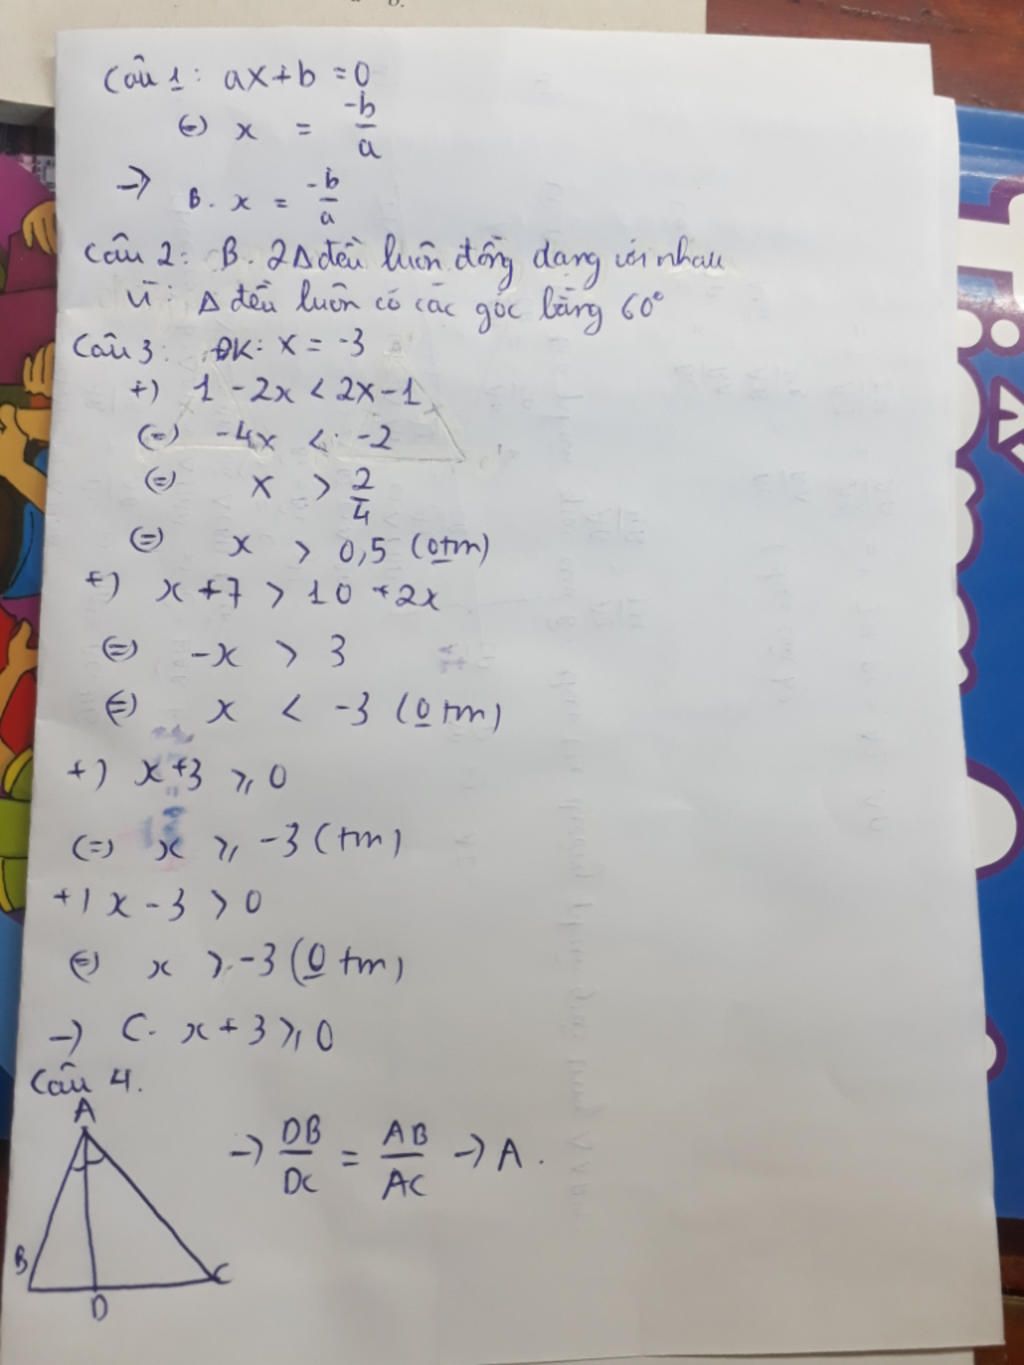 Câu 1: ax+b = 0
(=) x = -b/a
→ B. x = -b/a
Câu 2: B. 2Δ đều luôn đồng dạng với nhau
Vì: Δ đều luôn có các góc bằng 60°
Câu 3: ĐK: x = -3
+) 1 - 2x < 2x - 1
(=) -4x < -2
(=) x > 2/4
(=) x > 0,5 (0tm)
+) x + 7 > 10 + 2x
(=) -x > 3
(=) x < -3 (0 tm)
+) x + 3 ⩾ 0
(=) x ⩾ -3 (tm)
+) x - 3 > 0
(=) x > -3 (0 tm)
→ C. x + 3 ⩾ 0
Câu 4.
A
→ DB/DC = AB/AC → A.
B
C
D